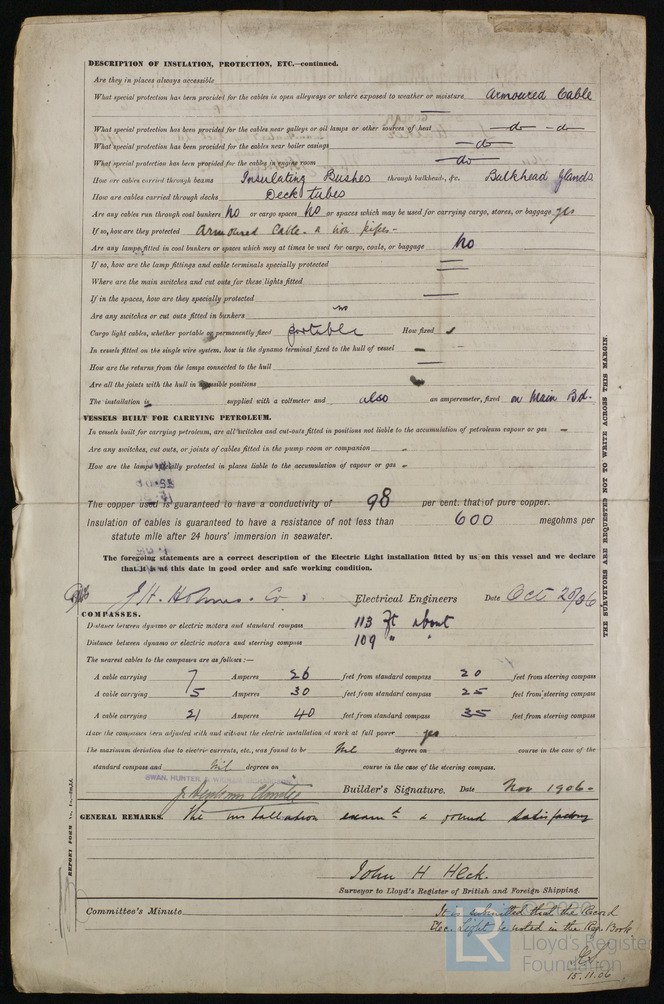 DESCRIPTION OF INSULATION, PROTECTION, ETC.—continued.
Are they in places always accessible
What special protection has been provided for the cables in open alleyways or where exposed to weather or moisture Armoured Cable
What special protection has been provided for the cables near galleys or oil lamps or other sources of heat —do— —do—
What special protection has been provided for the cables near boiler casings —do—
What special protection has been provided for the cables in engine room —do—
How are cables carried through beams Insulating Bushes through bulkheads, &c. Bulkhead Glands
How are cables carried through decks Deck tubes
Are any cables run through coal bunkers No or cargo spaces No or spaces which may be used for carrying cargo, stores, or baggage yes
If so, how are they protected Armoured Cable & iron pipes—
Are any lamps fitted in coal bunkers or spaces which may at times be used for cargo, coals, or baggage No
If so, how are the lamp fittings and cable terminals specially protected
Where are the main switches and cut outs for these lights fitted
If in the spaces, how are they specially protected
Are any switches or cut outs fitted in bunkers no
Cargo light cables, whether portable or permanently fixed portable How fixed
In vessels fitted on the single wire system, how is the dynamo terminal fixed to the hull of vessel
How are the returns from the lamps connected to the hull
Are all the joints with the hull in accessible positions
The installation is supplied with a voltmeter and also an amperemeter, fixed on Main Bd.
VESSELS BUILT FOR CARRYING PETROLEUM.
In vessels built for carrying petroleum, are all switches and cut-outs fitted in positions not liable to the accumulation of petroleum vapour or gas —
Are any switches, cut outs, or joints of cables fitted in the pump room or companion
How are the lamps specially protected in places liable to the accumulation of vapour or gas
The copper used is guaranteed to have a conductivity of 98 per cent. that of pure copper.
Insulation of cables is guaranteed to have a resistance of not less than 600 megohms per
statute mile after 24 hours' immersion in seawater.
The foregoing statements are a correct description of the Electric Light installation fitted by us on this vessel and we declare
that it is at this date in good order and safe working condition.
J. H. Holmes & Co Electrical Engineers Date Oct 20/06
COMPASSES.
Distance between dynamo or electric motors and standard compass 113 ft about
Distance between dynamo or electric motors and steering compass 109 " "
The nearest cables to the compasses are as follows:—
A cable carrying 7 Amperes 26 feet from standard compass 20 feet from steering compass
A cable carrying 5 Amperes 30 feet from standard compass 25 feet from steering compass
A cable carrying 21 Amperes 40 feet from standard compass 35 feet from steering compass
Have the compasses been adjusted with and without the electric installation at work at full power yes
The maximum deviation due to electric currents, etc., was found to be Nil degrees on course in the case of the
standard compass and Nil degrees on course in the case of the steering compass.
SWAN, HUNTER, &
Builder's Signature. Date Nov 1906—
GENERAL REMARKS. The installation exam'd & found satisfactory
John H Heck.
Surveyor to Lloyd's Register of British and Foreign Shipping.
Committee's Minute
It is submitted that the Record
Elec. Light be noted in the Reg. Book
15.11.06
THE SURVEYORS ARE REQUESTED NOT TO WRITE ACROSS THIS MARGIN.
REPORT FORM
LR
Lloyd's Register
Foundation